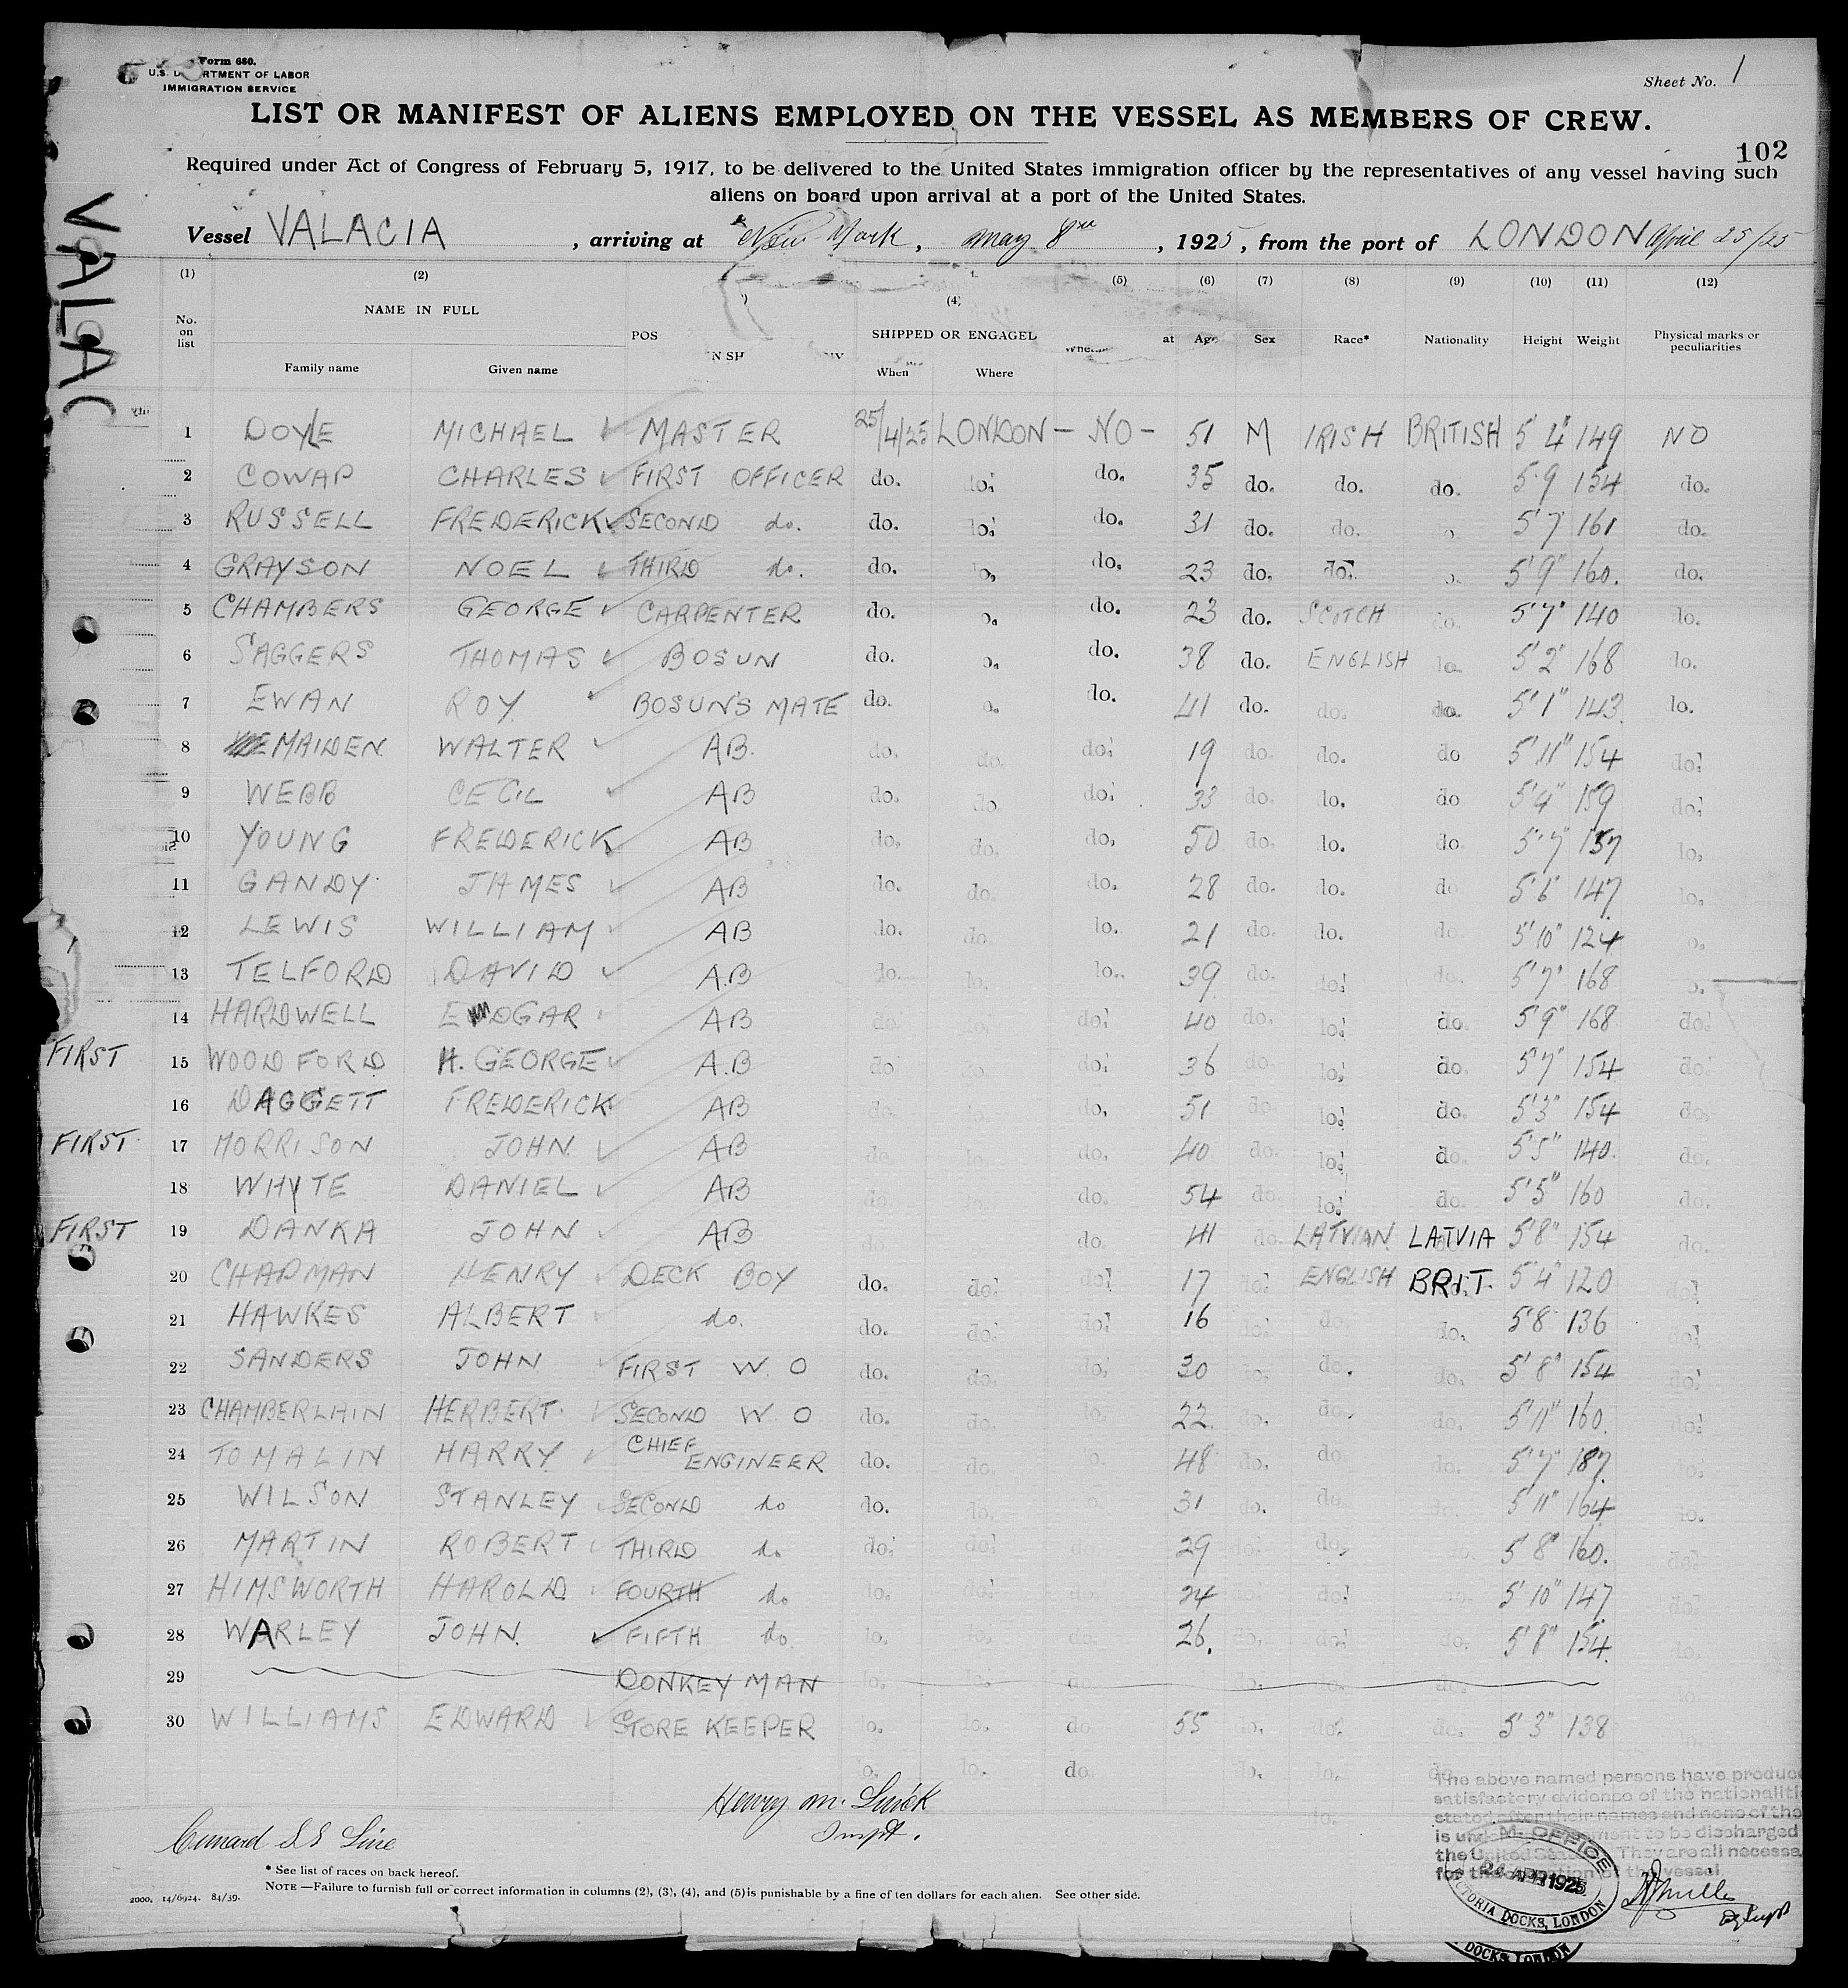 Form 680.
U.S. DEPARTMENT OF LABOR
IMMIGRATION SERVICE
Sheet No. 1
LIST OR MANIFEST OF ALIENS EMPLOYED ON THE VESSEL AS MEMBERS OF CREW.
102
Required under Act of Congress of February 5, 1917, to be delivered to the United States immigration officer by the representatives of any vessel having such
aliens on board upon arrival at a port of the United States.
VALAC
Vessel VALACIA, arriving at New York, May 8th, 1925, from the port of LONDON April 25/25
(1) (2) (4) (5) (6) (7) (8) (9) (10) (11) (12)
No. on list NAME IN FULL POS SHIPPED OR ENGAGED at Age Sex Race* Nationality Height Weight Physical marks or peculiarities
Family name Given name When Where
1 DOYLE MICHAEL MASTER 25/4/25 LONDON - NO - 51 M IRISH BRITISH 5 4" 149 NO
2 COWAP CHARLES FIRST OFFICER do. do. do. 35 do. do. do. 5.9 154 do.
3 RUSSELL FREDERICK SECOND do. do. do. do. 31 do. do. do. 5'7 161 do.
4 GRAYSON NOEL THIRD do. do. do. do. 23 do. do. do. 5'9" 160. do.
5 CHAMBERS GEORGE CARPENTER do. do. do. 23 do. SCOTCH do. 5'7" 140 do.
6 SAGGERS THOMAS BOSUN do. do. do. 38 do. ENGLISH do. 5'2" 168 do.
7 EWAN ROY BOSUN'S MATE do. do. do. 41 do. do. do. 5'1" 143. do.
8 MAIDEN WALTER AB. do. do. do. 19 do. do. do 5'11" 154 do.
9 WEBB CECIL AB do. do do. 33 do. do. do 5'4" 159 do.
10 YOUNG FREDERICK AB do. do. do. 50 do. do. do 5'7 157 do.
11 GANDY JAMES AB do. do. do. 28 do. do. do 5'6" 147 do.
12 LEWIS WILLIAM AB do. do. do. 21 do. do. do. 5'10" 124 do.
13 TELFORD DAVID A.B do. do. do. 39 do. do. do. 5'7" 168 do.
14 HARDWELL EDGAR AB do do. do. 40 do. do. do. 5'9" 168 do.
FIRST 15 WOODFORD H. GEORGE A.B do do. do. 36 do. do. do. 5'7" 154 do.
16 DAGGETT FREDERICK AB do. do. do. 51 do. do. do. 5'3" 154 do.
FIRST 17 MORRISON JOHN AB do. do. do. 40 do. do. do. 5'5" 140. do.
18 WHYTE DANIEL AB do. do. do. 54 do. do. do. 5'5" 160 do.
FIRST 19 DANKA JOHN AB do. do. 41 do. LATVIAN LATVIA 5'8" 154 do.
20 CHAPMAN HENRY DECK BOY do. do. do. 17 do. ENGLISH BRIT. 5'4" 120 do.
21 HAWKES ALBERT do. do. do. do. 16 do. do. do. 5'8" 136 do.
22 SANDERS JOHN FIRST W. O do. do. do. 30 do. do. do. 5'8" 154 do.
23 CHAMBERLAIN HERBERT. SECOND W. O do. do. do. 22. do. do. do. 5'11" 160. do.
24 TOMALIN HARRY CHIEF ENGINEER do. do. do. 48 do. do. do. 5'7" 187. do.
25 WILSON STANLEY SECOND do do. do. do. 31 do. do. do. 5'11" 164 do.
26 MARTIN ROBERT THIRD do do. do. do. 29 do. do. do. 5'8" 160. do.
27 HIMSWORTH HAROLD. FOURTH do do. do. do. 24 do. do. do. 5'10" 147. do.
28 WARLEY JOHN. FIFTH do. do. do. do. 26. do. do. do. 5'8" 154. do.
29 DONKEY MAN do. do. do. do. do. do. do.
30 WILLIAMS EDWARD STORE KEEPER do. do. do. 55 do. do. do. 5'3" 138 do.
do. do. do. do. do. do.
Henry M.
Inspt.
Cunard SS Line
The above named persons have produc
satisfactory evidence of the nationaliti
stated after their names and none of the
is under to be discharged
the United States. They are all necessa
for the operation of the vessel.
M. OFFICE
24 APR 1925
VICTORIA DOCKS, LONDON
DOCKS, LONDON
* See list of races on back hereof.
NOTE.—Failure to furnish full or correct information in columns (2), (3), (4), and (5) is punishable by a fine of ten dollars for each alien. See other side.
2000. 14/6924. 84/39.